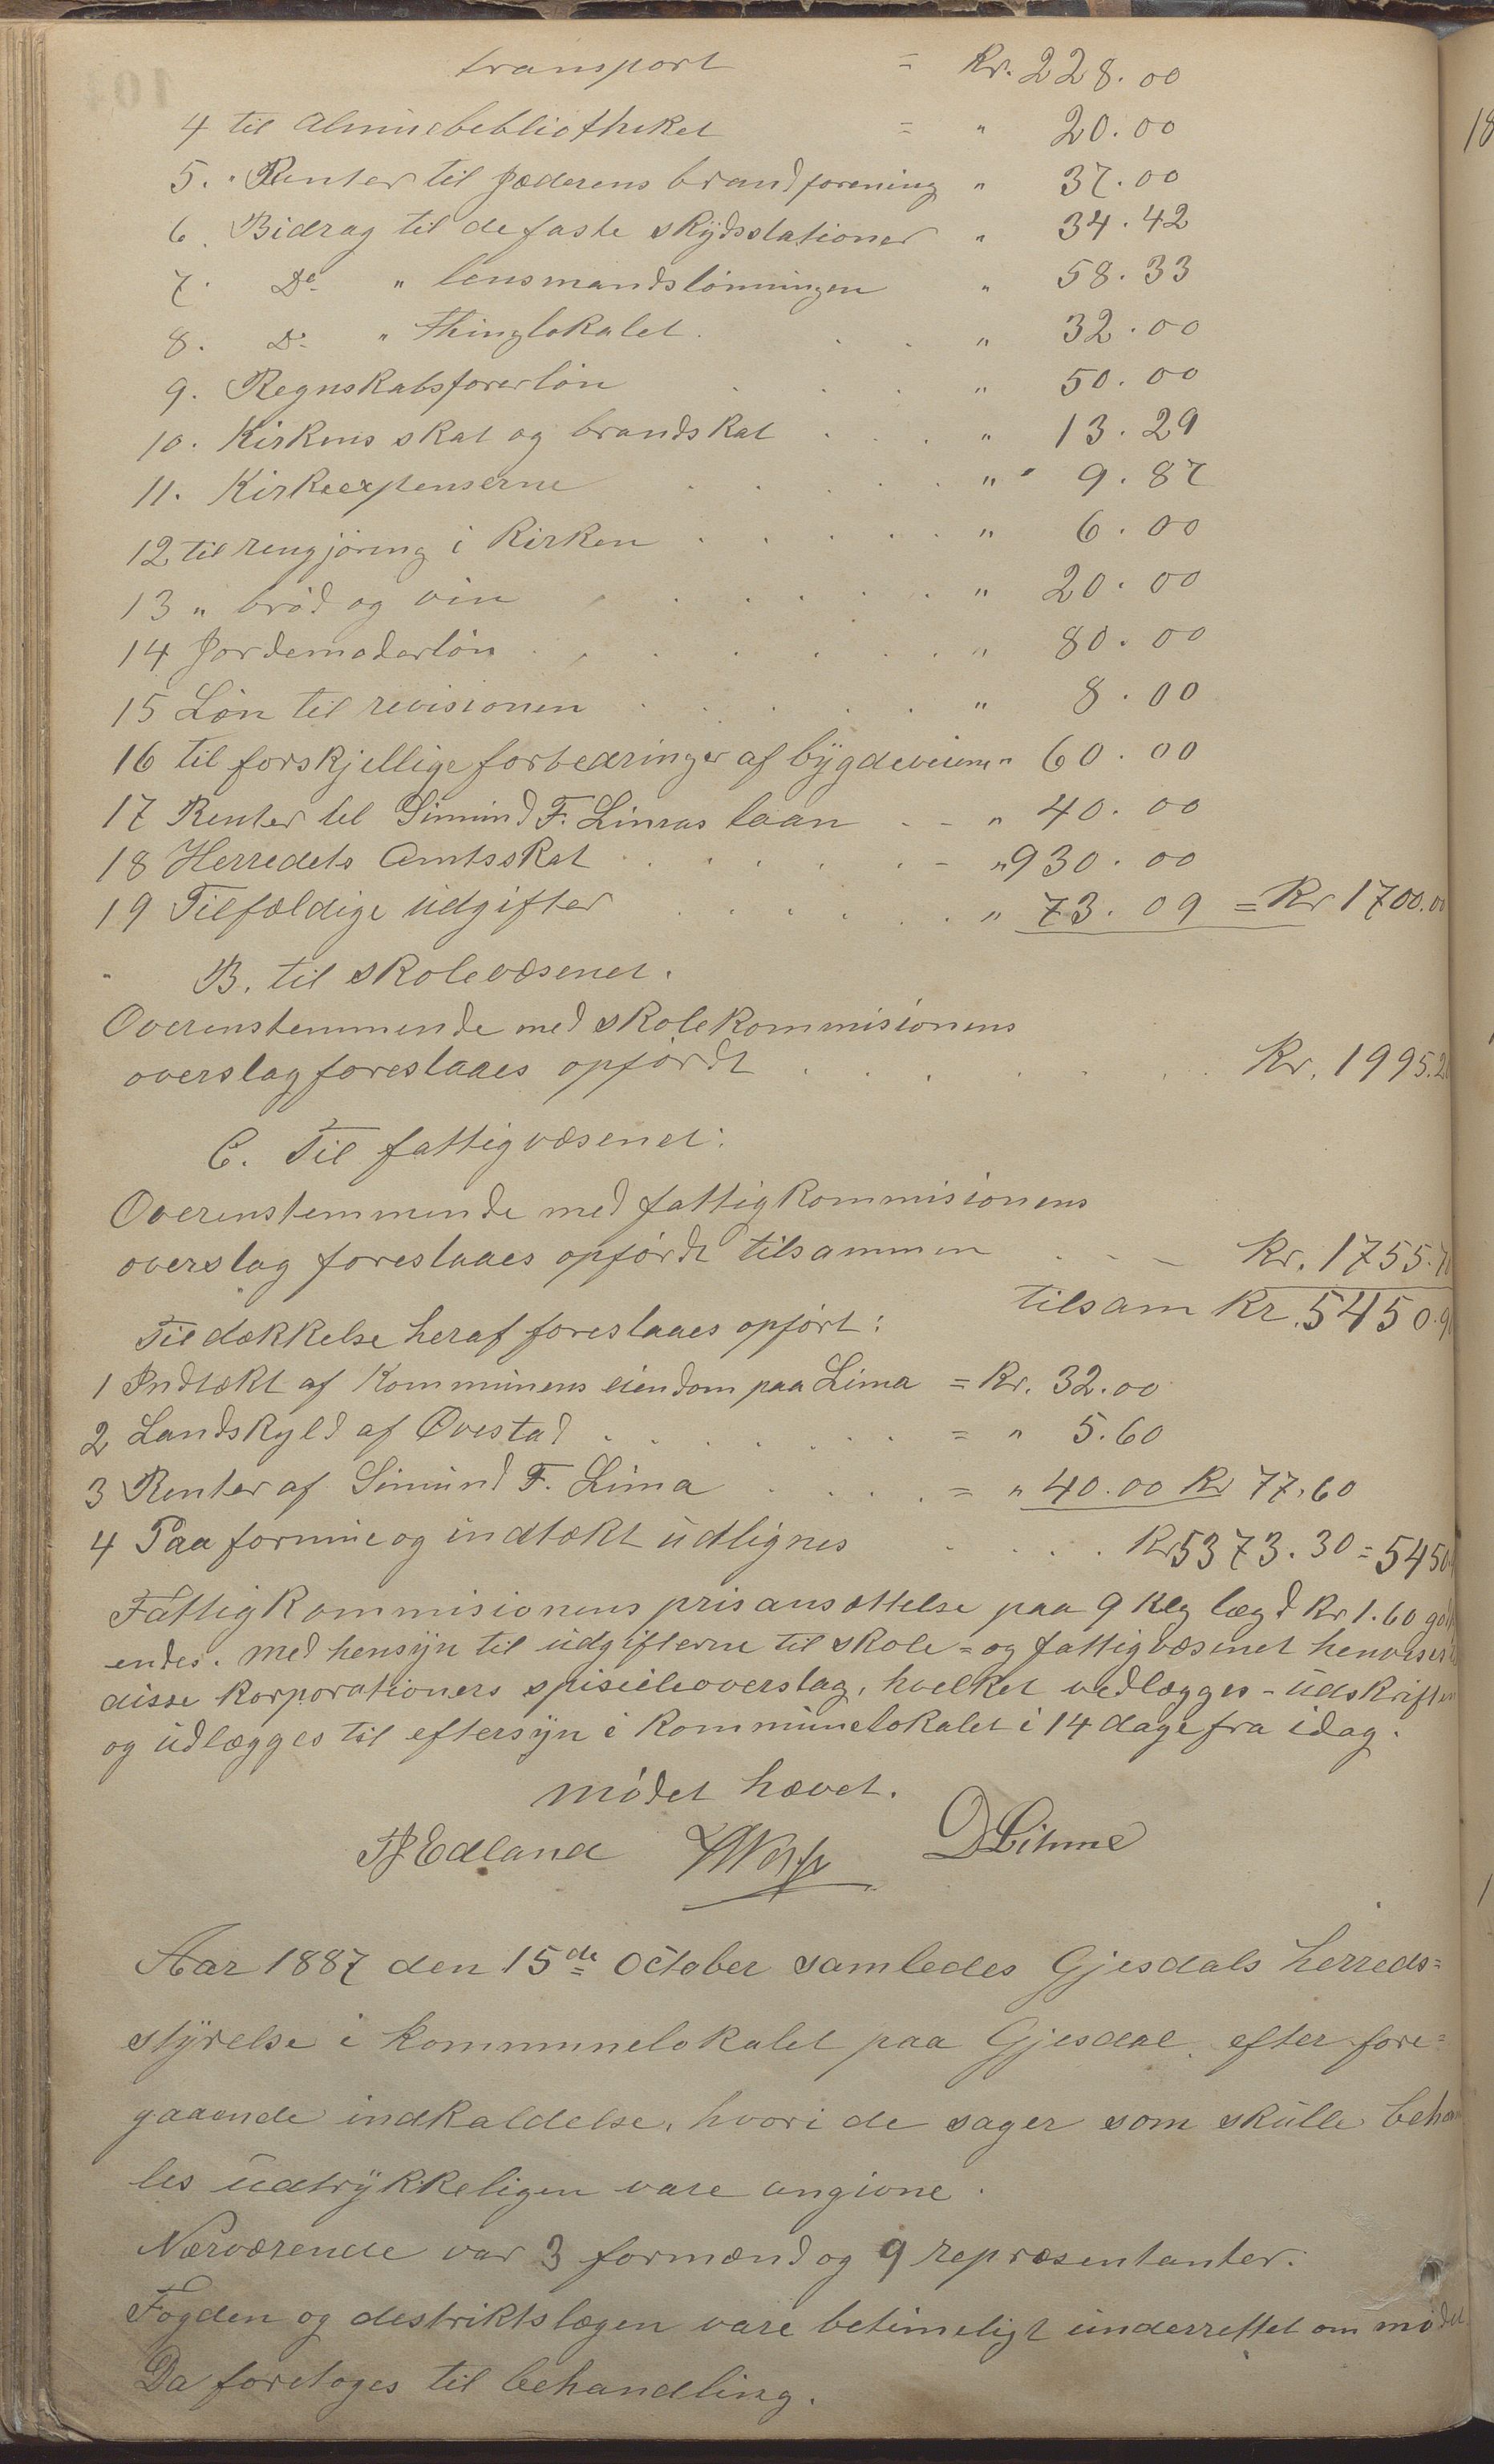 transport = Kr. 228.00
4 til Almuebebliotheket = " 20.00
5. " Renter til Jæderens brandforening " 37.00
6. Bidrag til de faste skydsstationer " 34.42
7. Do " lensmandslønningen " 58.33
8. Do " Thinglokalet . . . " 32.00
9. Regnskabsførerløn . . . " 50.00
10. Kirkens skat og brandskat . . . " 13.29
11. Kirkeexpenserne . . . . " " 9.87
12 til rengjøring i Kirken . . . . . " 6.00
13 " brød og vin . . . . . . " 20.00
14 Jordemoderløn . . . . . . . " 80.00
15 Løn til revisionen . . . . . " 8.00
16 til forskjellige forbedringer af bygdeveiene " 60.00
17 Renter til Simund F. Limas laan . - " 40.00
18 Herredets Amtsskat . . . . . - " 930.00
19 Tilfældige udgifter . . . . . " 73.09 = Kr 1700.00
B. til skolevæsenet.
Overenstemmende med skolekommisionens
overslag foreslaaes opførdt . . . . . . Kr. 1995.2
C. Til fattigvæsenet:
Overenstemmende med fattigkommisionens
overslag foreslaaes opførdt tilsammen . - - Kr. 1755.7
tilsam Kr. 5450.9
Til dækkelse heraf foreslaaes opført:
1 Indtækt af Kommunens eiendom paa Lima = Kr. 32.00
2 Landskyld af Ovestad . . . . . . = " 5.60
3 Renter af Simund F. Lima . . . . = " 40.00 Kr 77.60
4 Paa formue og indtækt udlignes . . . . Kr 5373.30 = 5450
Fattigkommisionens prisansættelse paa 9 Klg lægd Kr 1.60 god
endes. Med hensyn til udgifterne til skole = og fattigvæsenet henvises
disse korporationers spisieleoverslag, hvelket vedlægges - udskriften
og udlægges til eftersyn i Kommunelokalet i 14 dage fra idag.
mødet hævet.
TJEdland DLimme
Aar 1887 den 15de October samledes Gjesdals herreds=
styrelse i kommunelokalet paa Gjesdal efter fore=
gaaende indkaldelse, hvori de sager som skulle behan
les udtrykkeligen vare angivne.
Nærværende var 3 formænd og 9 repræsentanter.
Fogden og destriktslægen vare betimeligt underrettet om mødet
Da foretoges til behandling.